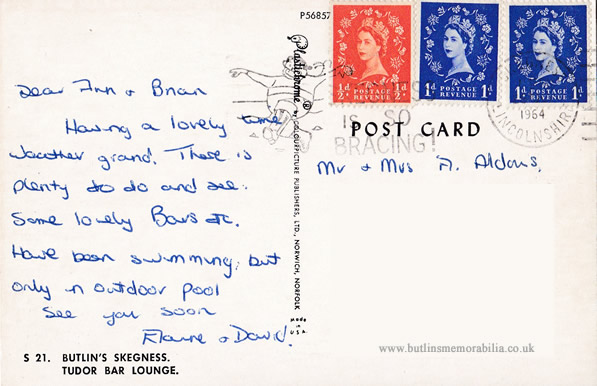 P56857
Dear Ann & Brian
Having a lovely time
weather grand. There is
plenty to do and see.
Some lovely Bars etc.
Have been swimming, but
only in outdoor pool
See you soon
Elaine & David.
S 21. BUTLIN'S SKEGNESS.
TUDOR BAR LOUNGE.
Plastichrome®
BY COLOURPICTURE PUBLISHERS, LTD., NORWICH, NORFOLK
MADE IN U.S.A.
½d POSTAGE REVENUE ½d
1d POSTAGE REVENUE 1d
1d POSTAGE REVENUE 1d
IS SO
BRACING!
1964
LINCOLNSHIRE
POST CARD
Mr & Mrs A. Aldous,
www.butlinsmemorabilia.co.uk